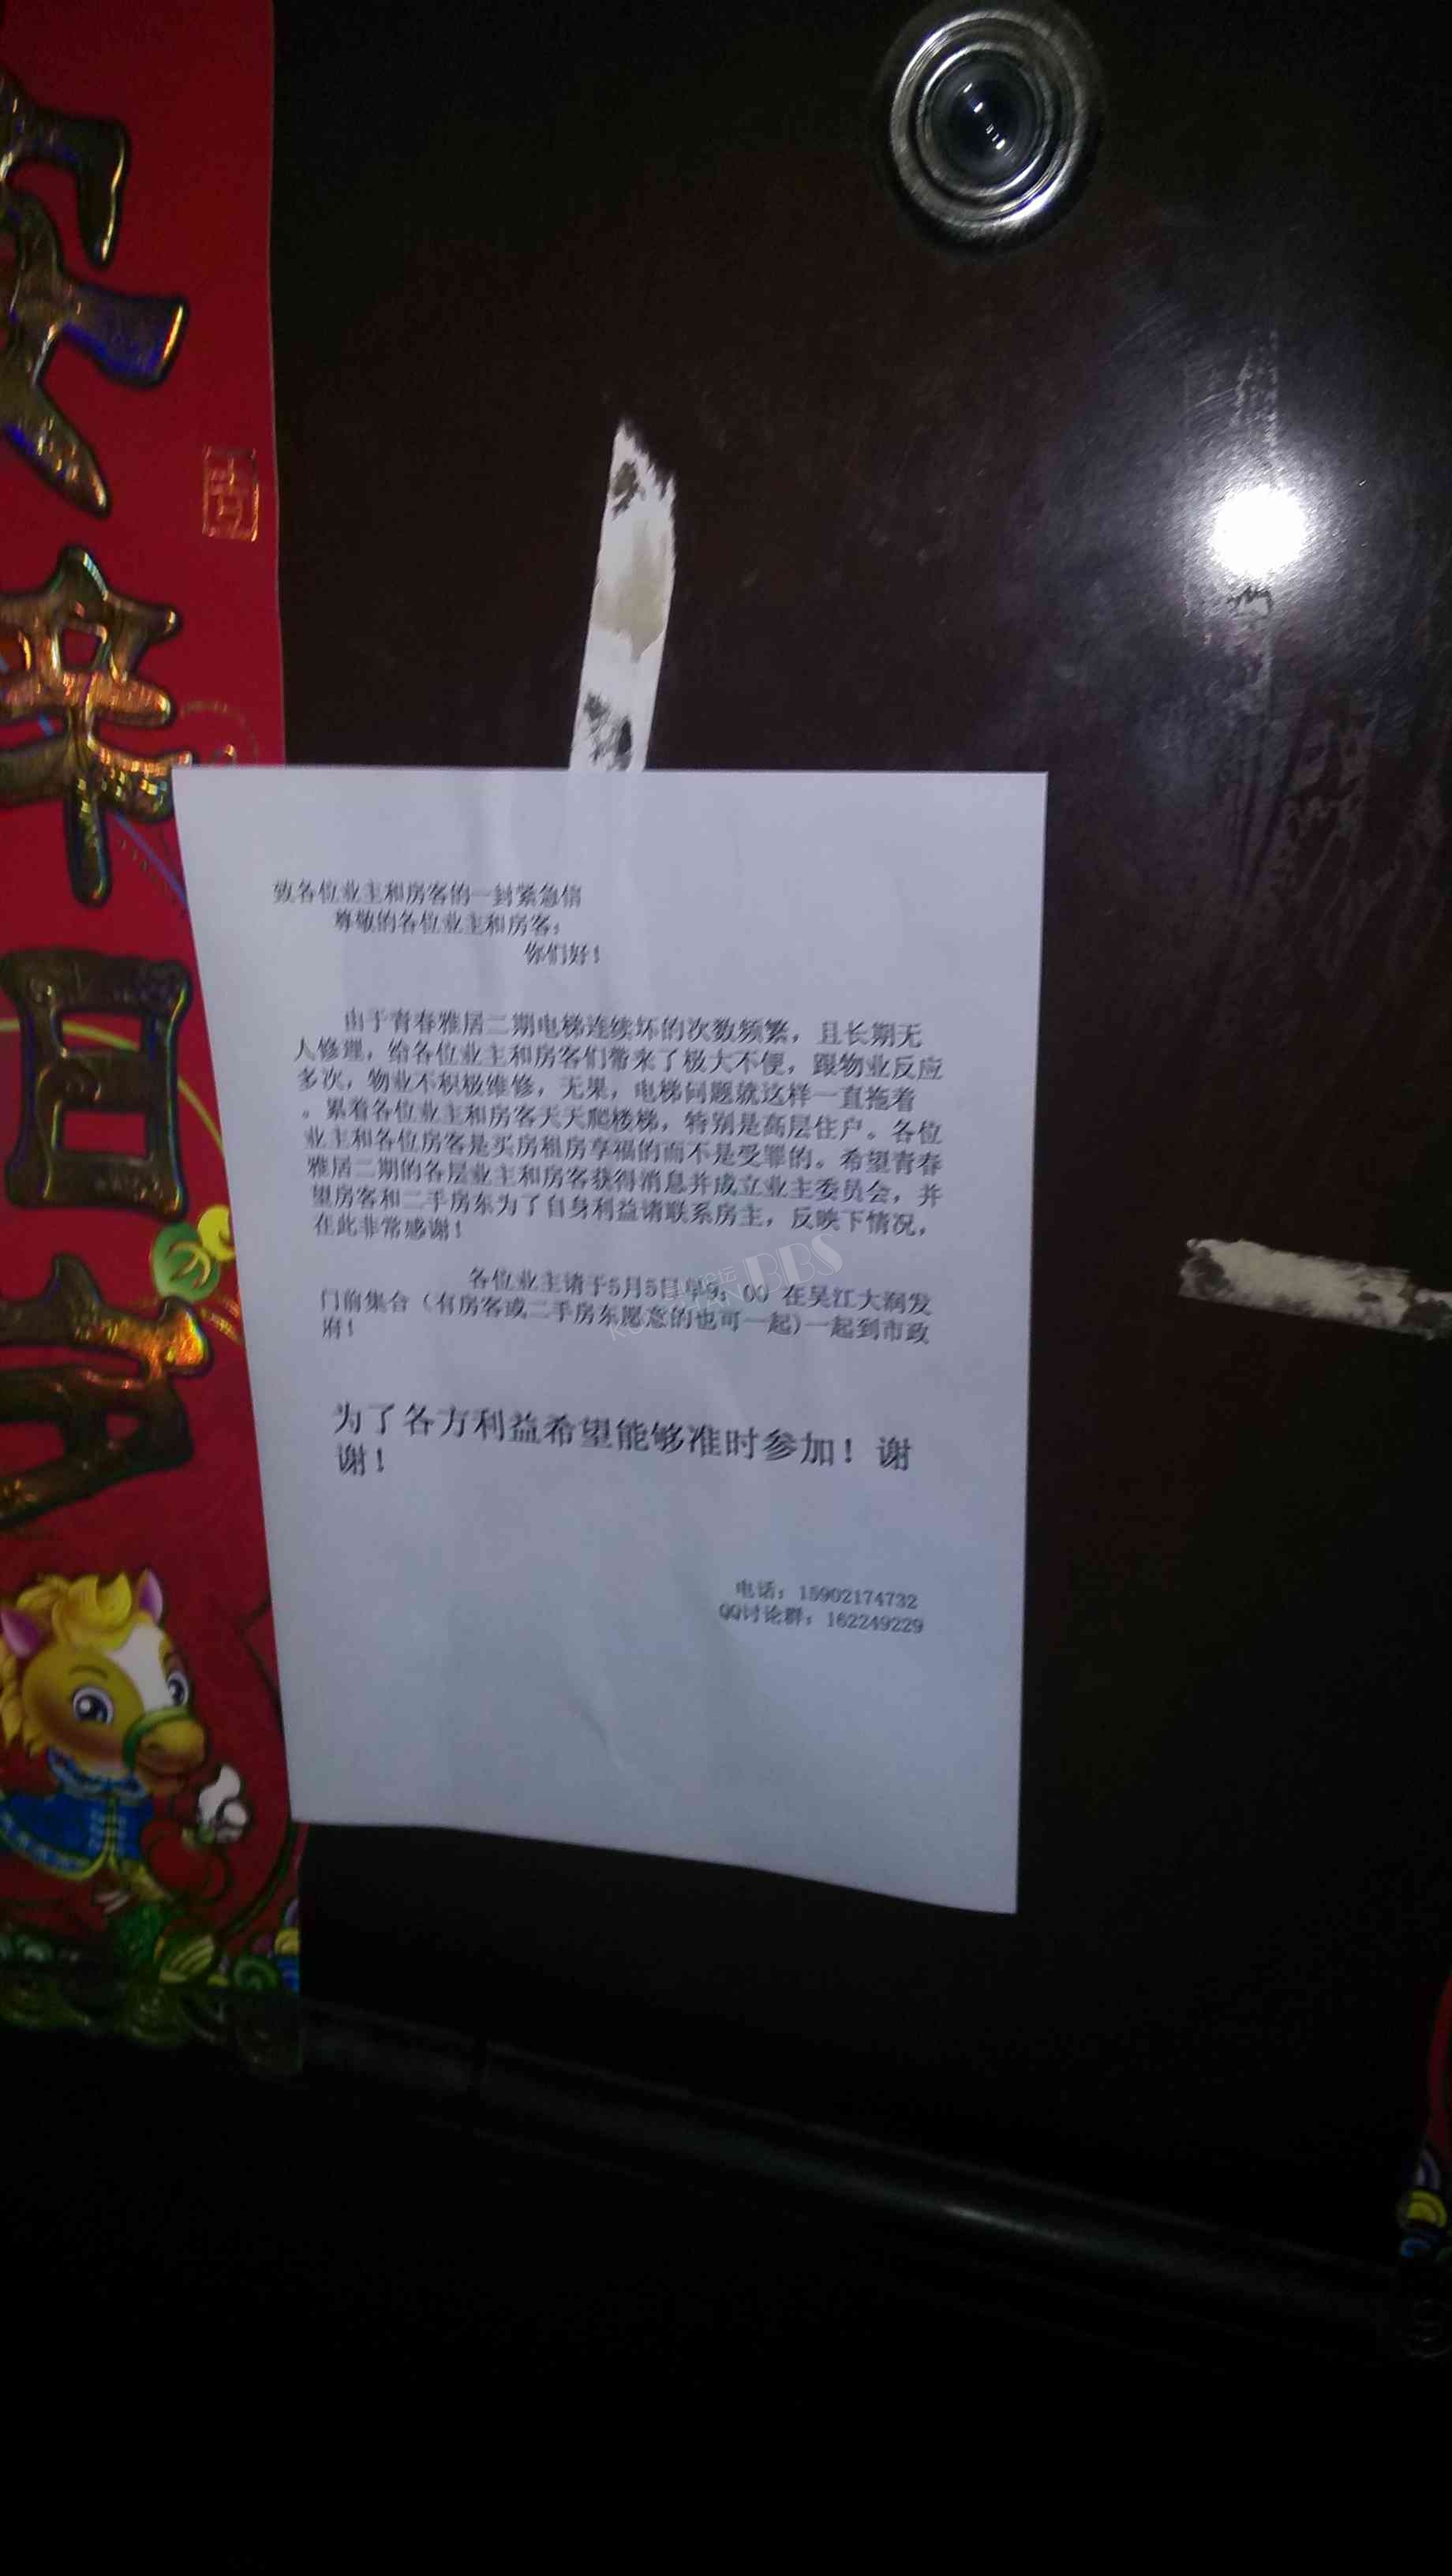 吉
致各位业主和房客的一封紧急信
尊敬的各位业主和房客：
你们好！
由于青春雅居二期电梯连续坏的次数频繁，且长期无
人修理，给各位业主和房客们带来了极大不便，跟物业反应
多次，物业不积极维修，无果，电梯问题就这样一直拖着
。累着各位业主和房客天天爬楼梯，特别是高层住户。各位
业主和各位房客是买房租房享福的而不是受罪的。希望青春
雅居二期的各层业主和房客获得消息并成立业主委员会，并
望房客和二手房东为了自身利益请联系房主，反映下情况，
在此非常感谢！
各位业主请于5月5日早9：00 在吴江大润发
门前集合（有房客或二手房东愿意的也可一起)一起到市政
府！
为了各方利益希望能够准时参加！谢
谢！
电话：15902174732
QQ讨论群：162249229
BBS